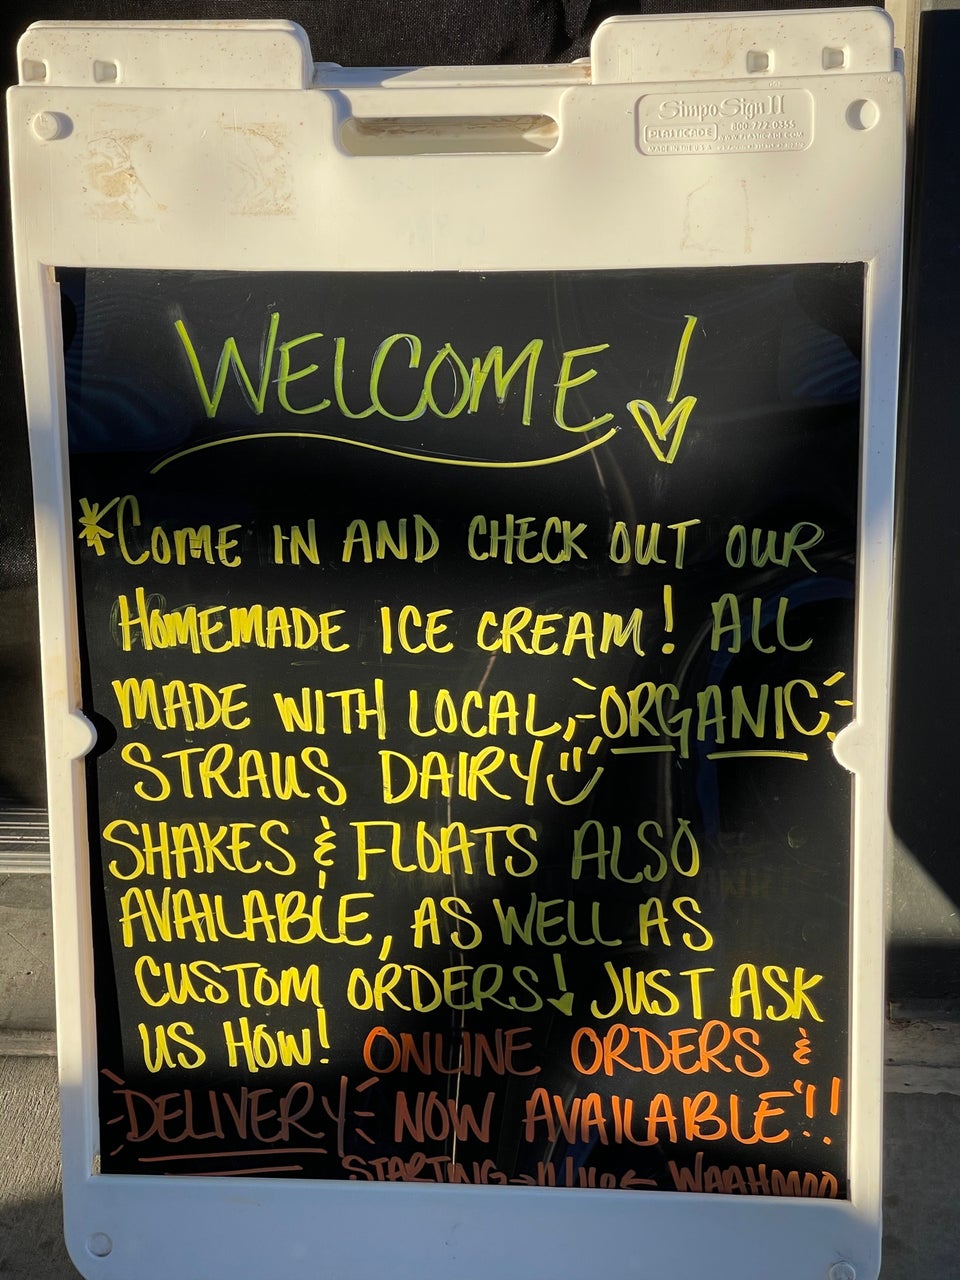 SimpoSign II
PLASTICADE 800-772-0355
WWW.PLASTICADE.COM
MADE IN THE U.S.A.
WELCOME!
*COME IN AND CHECK OUT OUR
HOMEMADE ICE CREAM! ALL
MADE WITH LOCAL, ORGANIC
STRAUS DAIRY
SHAKES & FLOATS ALSO
AVAILABLE, AS WELL AS
CUSTOM ORDERS! JUST ASK
US HOW! ONLINE ORDERS &
DELIVERY NOW AVAILABLE!!
STARTING → ← WAAHMOO